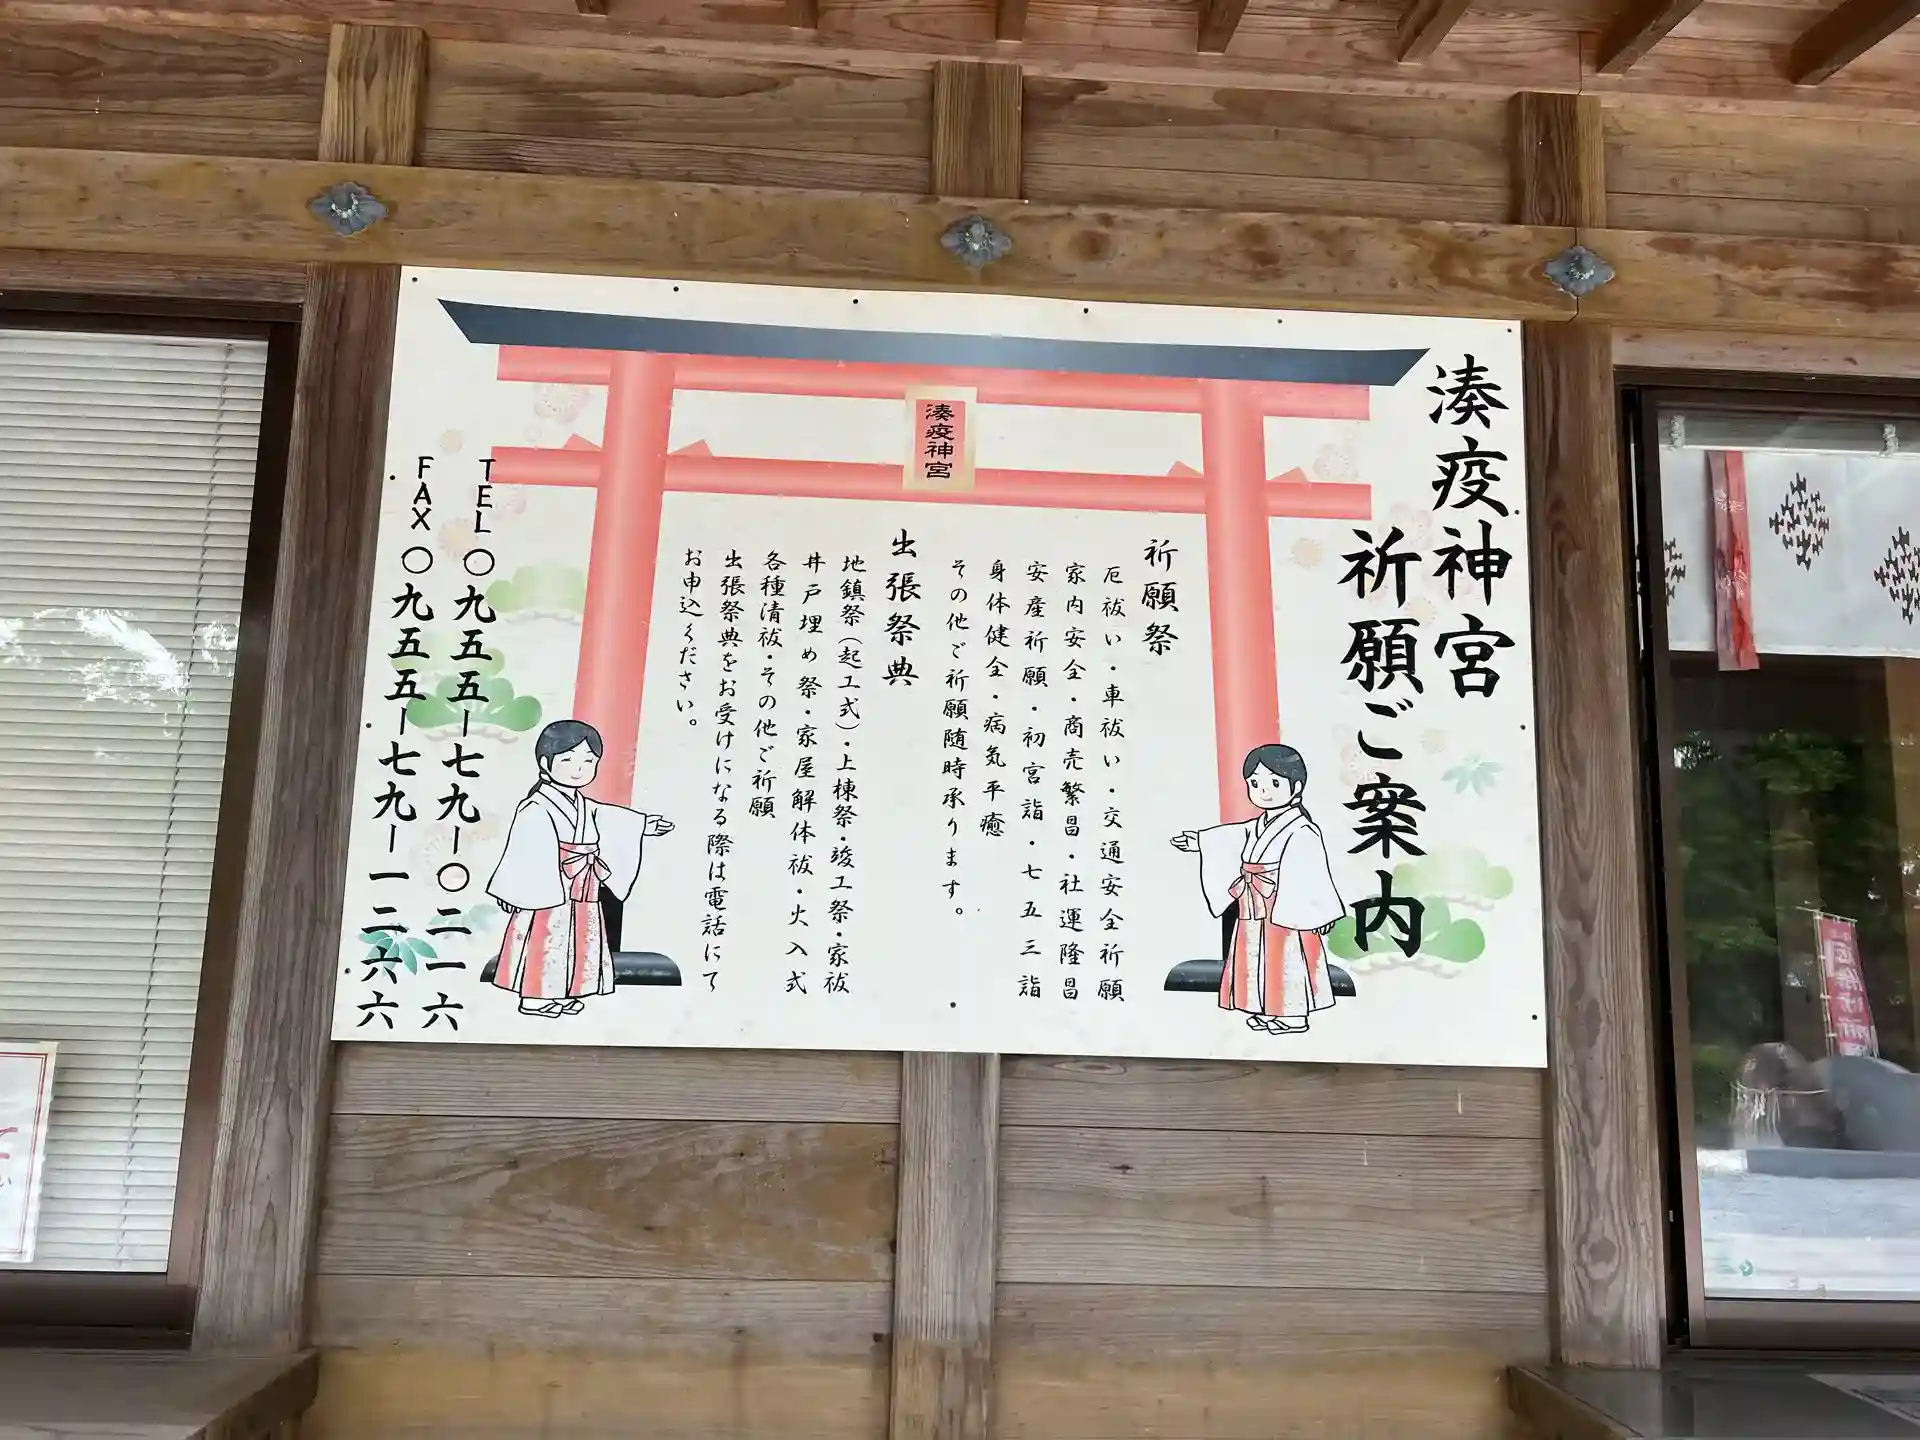 湊疫神宮
祈願ご案内
湊疫神宮
祈願祭
厄祓い・車祓い・交通安全祈願
家内安全・商売繁昌・社運隆昌
安産祈願・初宮詣・七五三詣
身体健全・病気平癒
その他ご祈願随時承ります。
出張祭典
地鎮祭(起工式)・上棟祭・竣工祭・家祓
井戸埋め祭・家屋解体祓・火入式
各種清祓・その他ご祈願
出張祭典をお受けになる際は電話にて
お申込ください。
TEL〇九五五ー七九ー〇二一六
FAX〇九五五ー七九ー一二六六